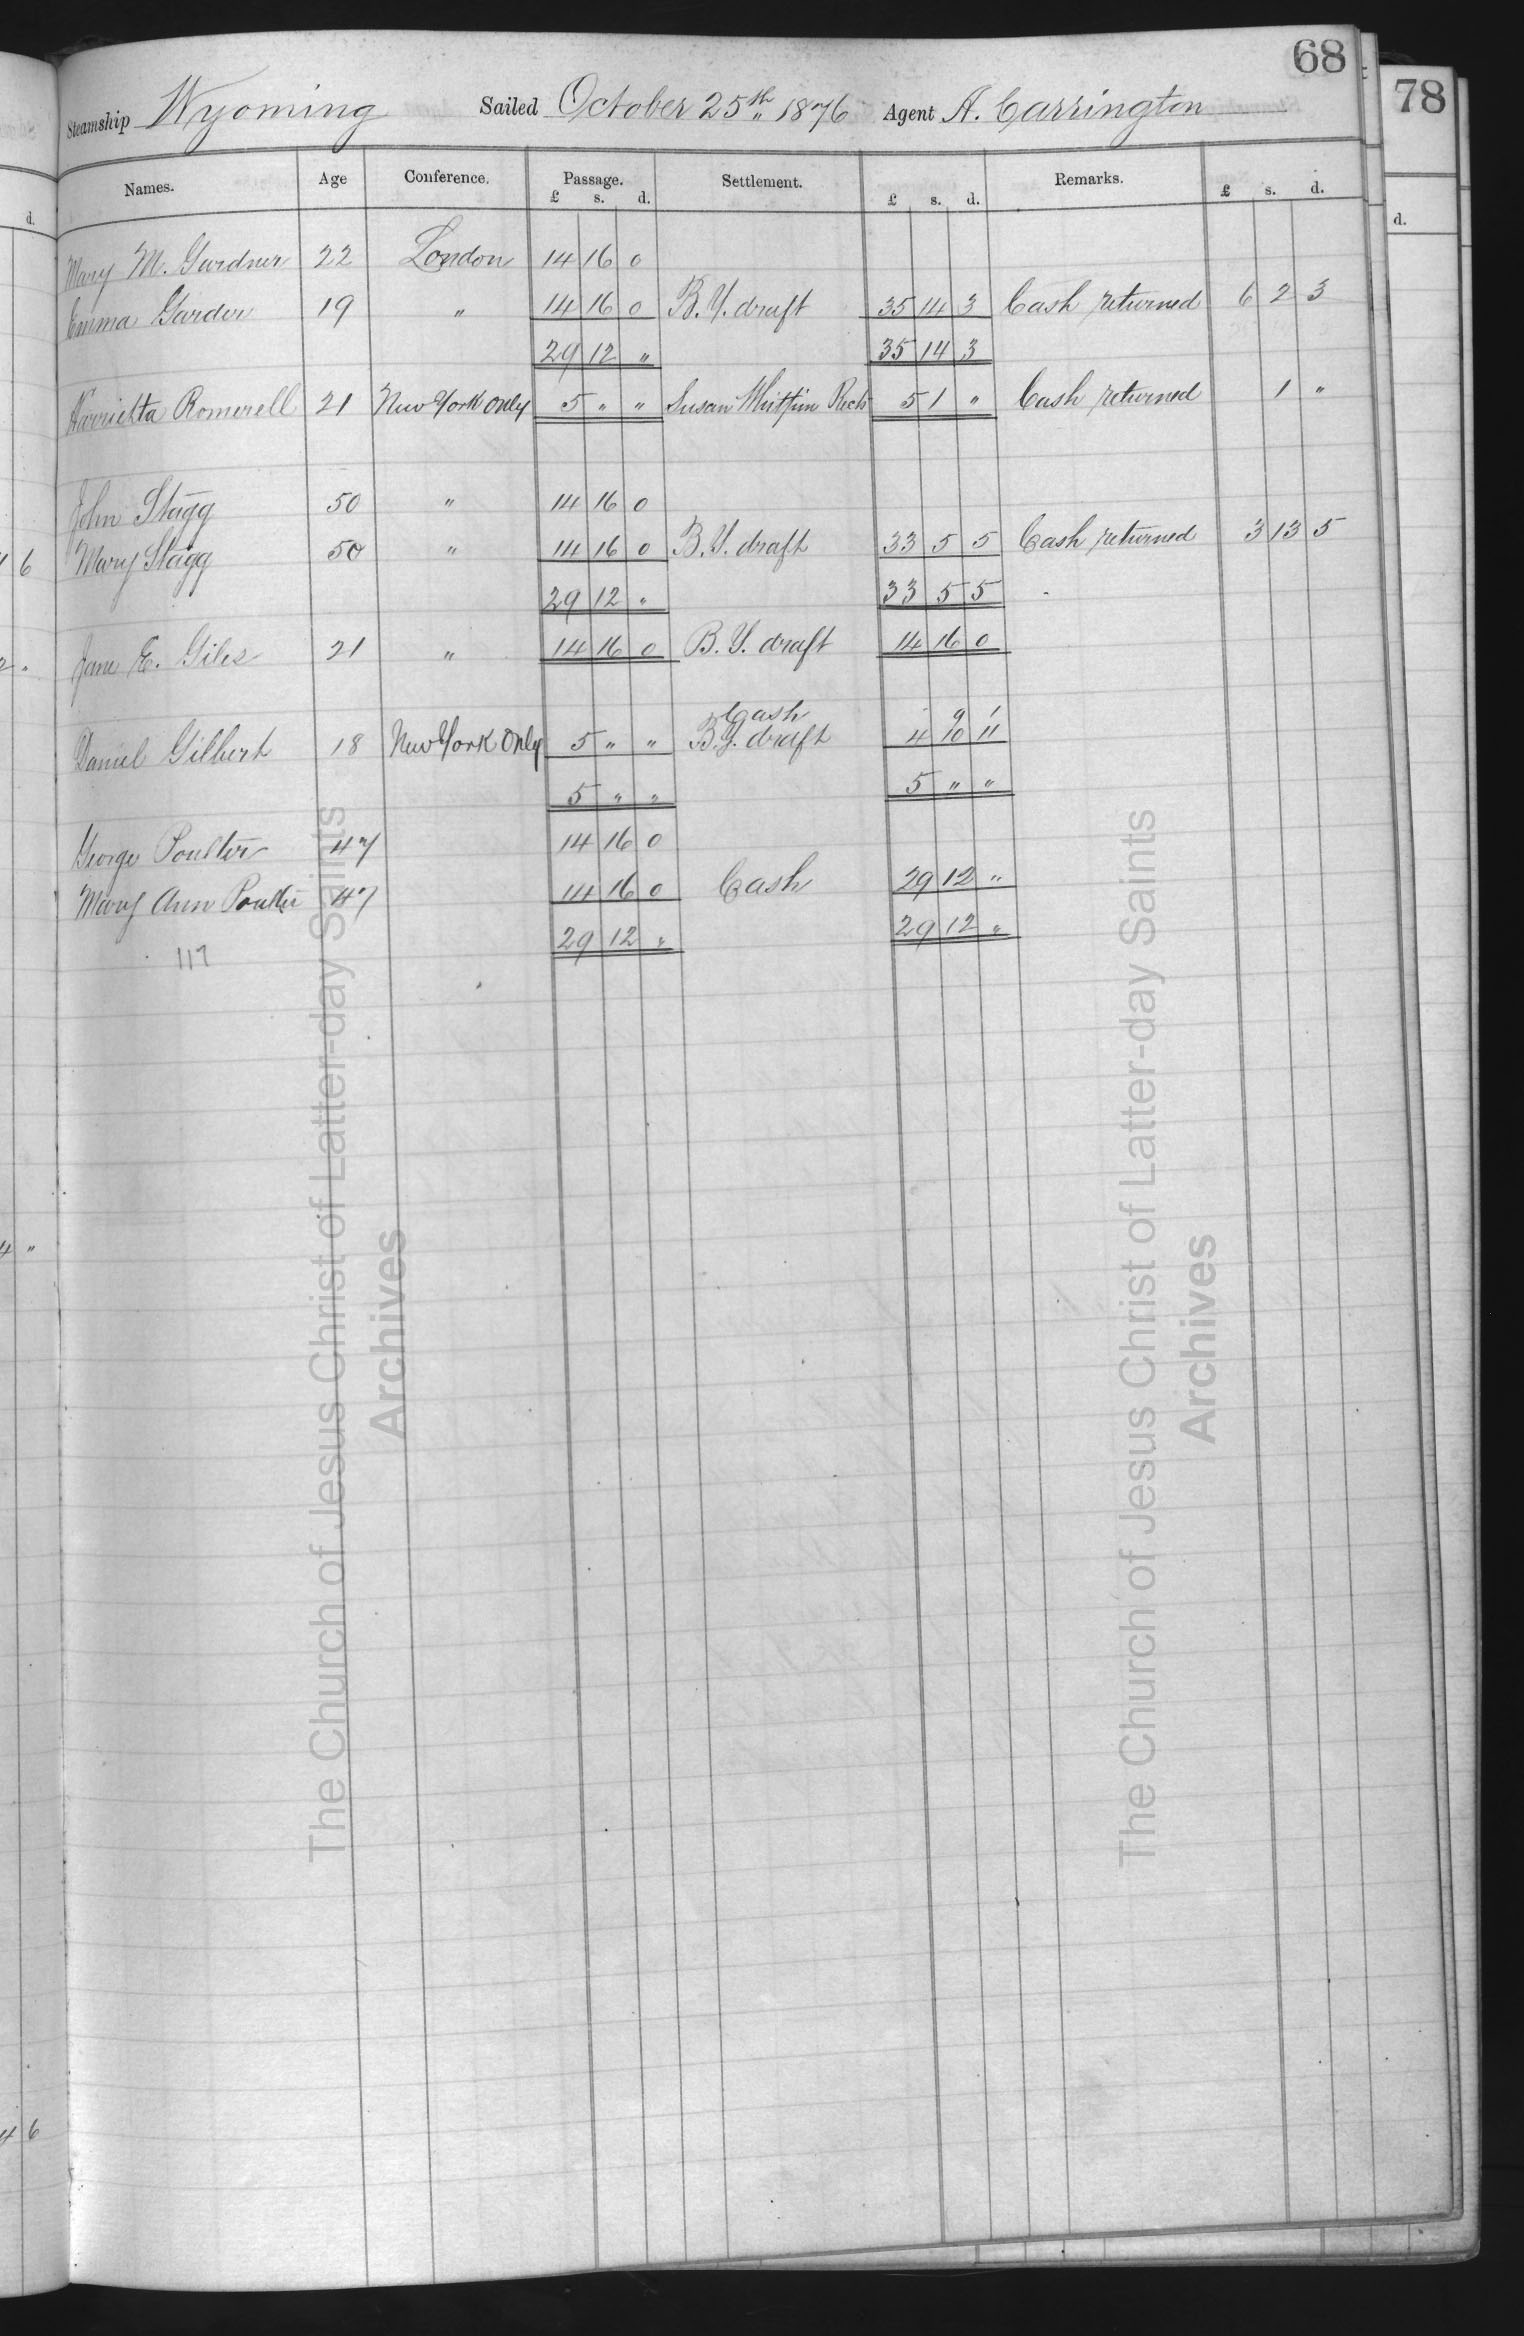 68
78
Steamship Wyoming Sailed October 25th 1876 Agent A. Carrington
Names. Age Conference. Passage. £ s. d. Settlement. £ s. d. Remarks. £ s. d.
d.
d.
Mary M. Gardner 22 London 14 16 0
Emma Garder 19 " 14 16 0 B. Y. draft 35 14 3 Cash returned 6 2 3
29 12 " 35 14 3
Harriehta Romerell 21 New York Only 5 " " Susan 5 1 " Cash returned 1 "
John Stagg 50 " 14 16 0
Mary Stagg 50 " 14 16 0 B. Y. draft 33 5 5 Cash returned 3 13 5
6
29 12 " 33 5 5
Jane E. Giles 21 " 14 16 0 B. Y. draft 14 16 0
2 "
Cash 9 1
Daniel Gilbert 18 New York Only 5 " " B.Y. draft 4 10 11
5 " " 5 " "
George Poulter 47 14 16 0
Mary Ann Poulter 47 14 16 0 Cash 29 12 "
29 12 " 29 12 "
117
4 "
4 6
The Church of Jesus Christ of Latter-day Saints
Archives
The Church of Jesus Christ of Latter-day Saints
Archives